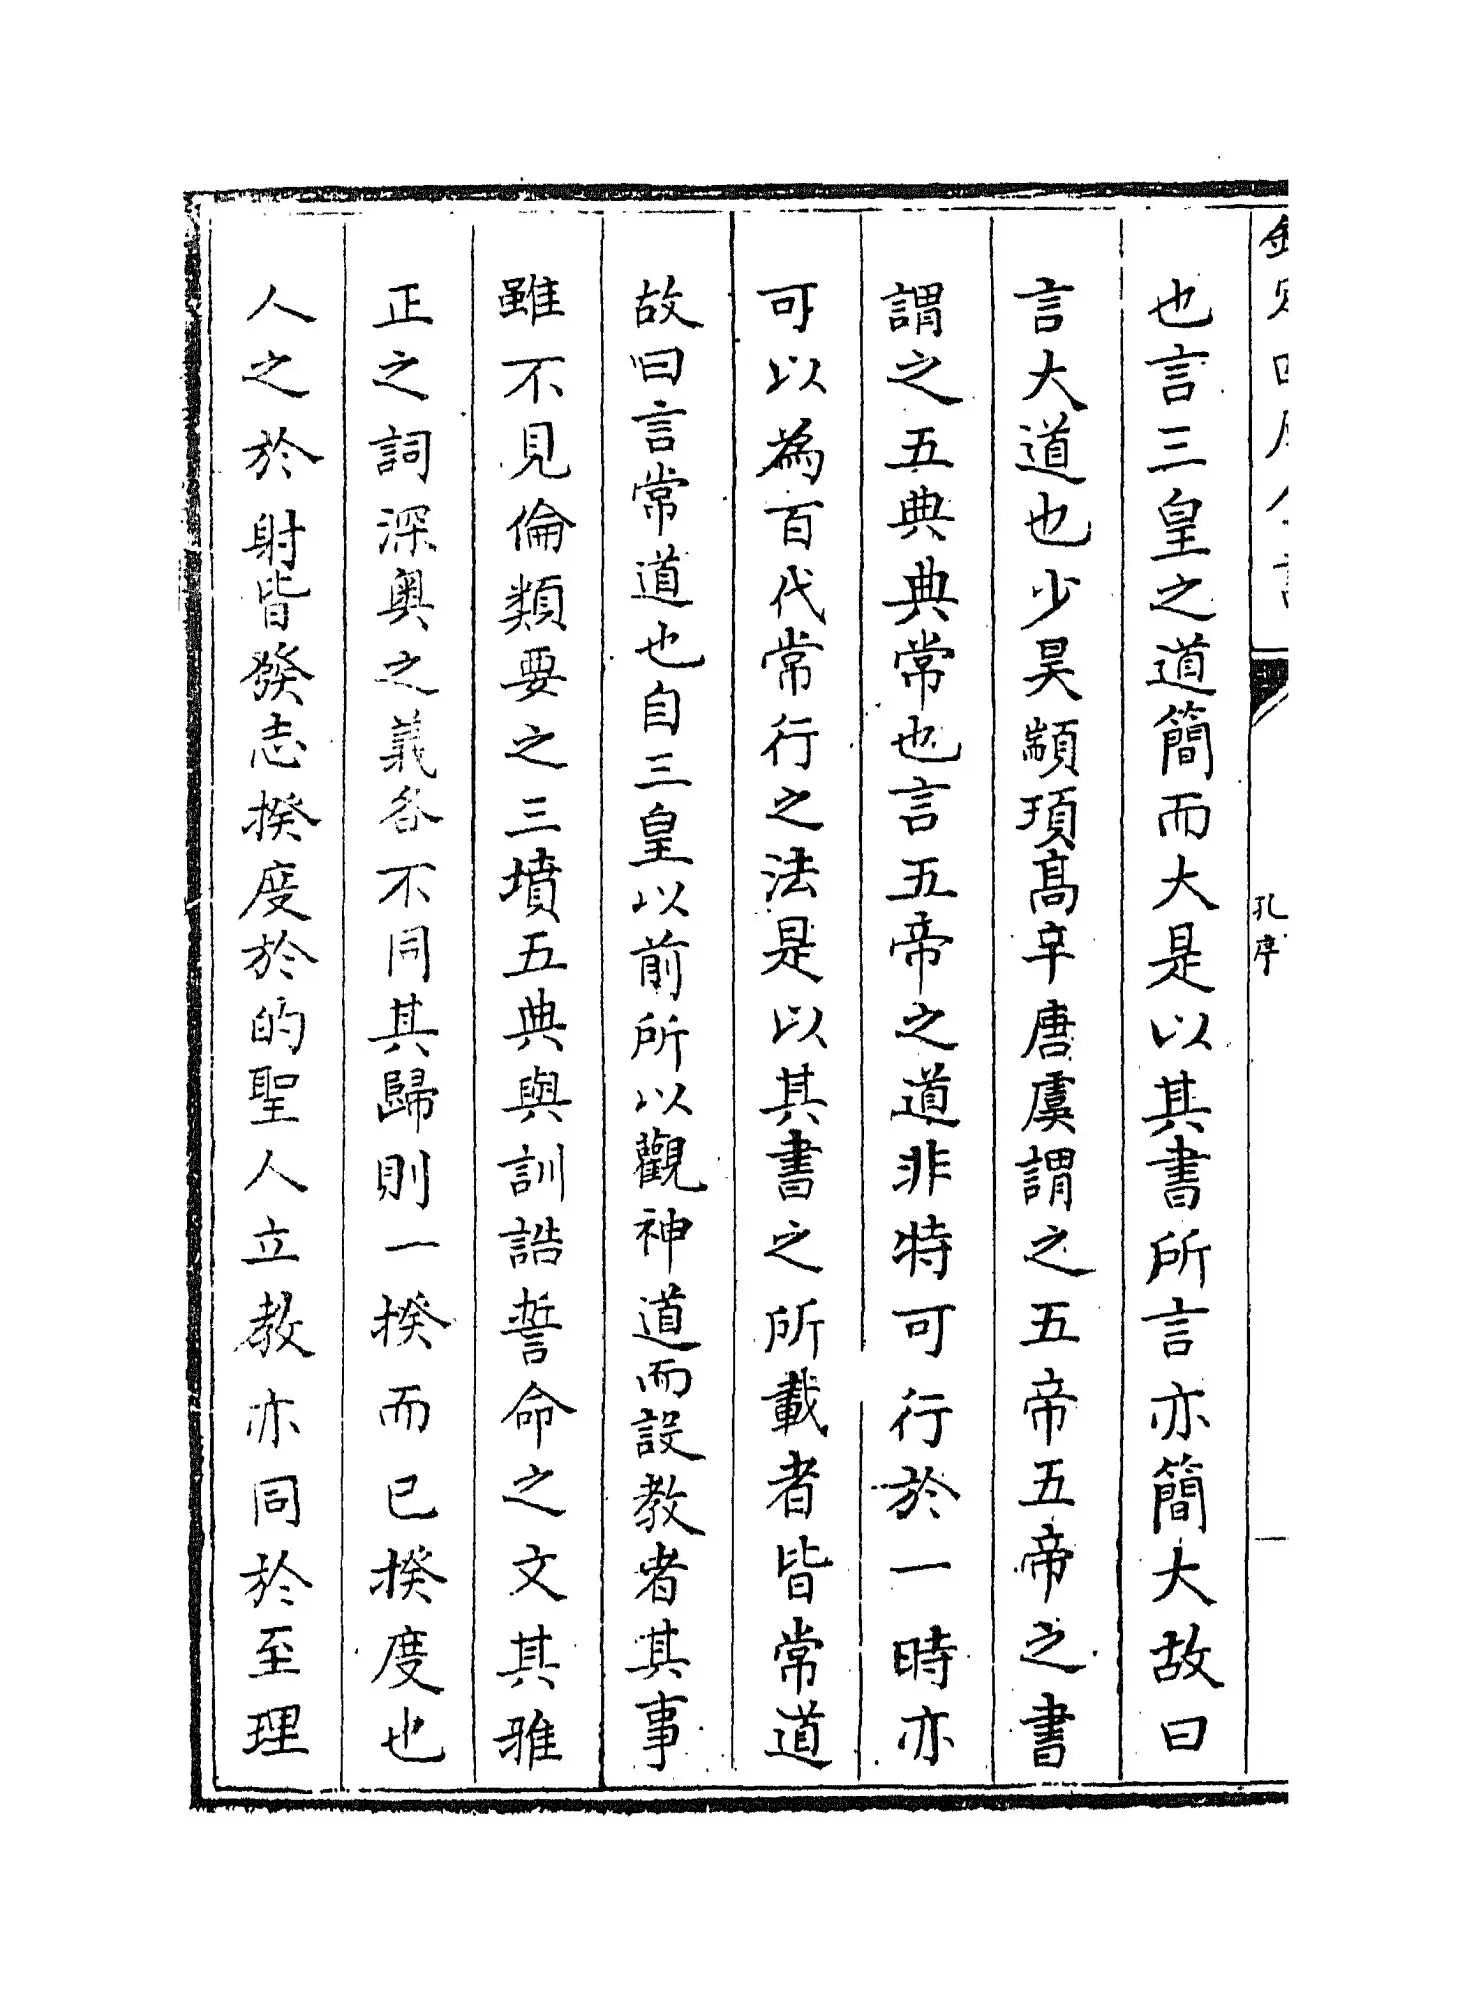 欽定四庫全書
孔序
也言三皇之道簡而大是以其書所言亦簡大故曰
言大道也少昊顓頊髙辛唐虞謂之五帝五帝之書
謂之五典典常也言五帝之道非特可行於一時亦
可以為百代常行之法是以其書之所載者皆常道
故曰言常道也自三皇以前所以觀神道而設教者其事
雖不見倫類要之三墳五典與訓誥誓命之文其雅
正之詞深奧之義各不同其歸則一揆而已揆度也
人之於射皆發志揆度於的聖人立教亦同於至理